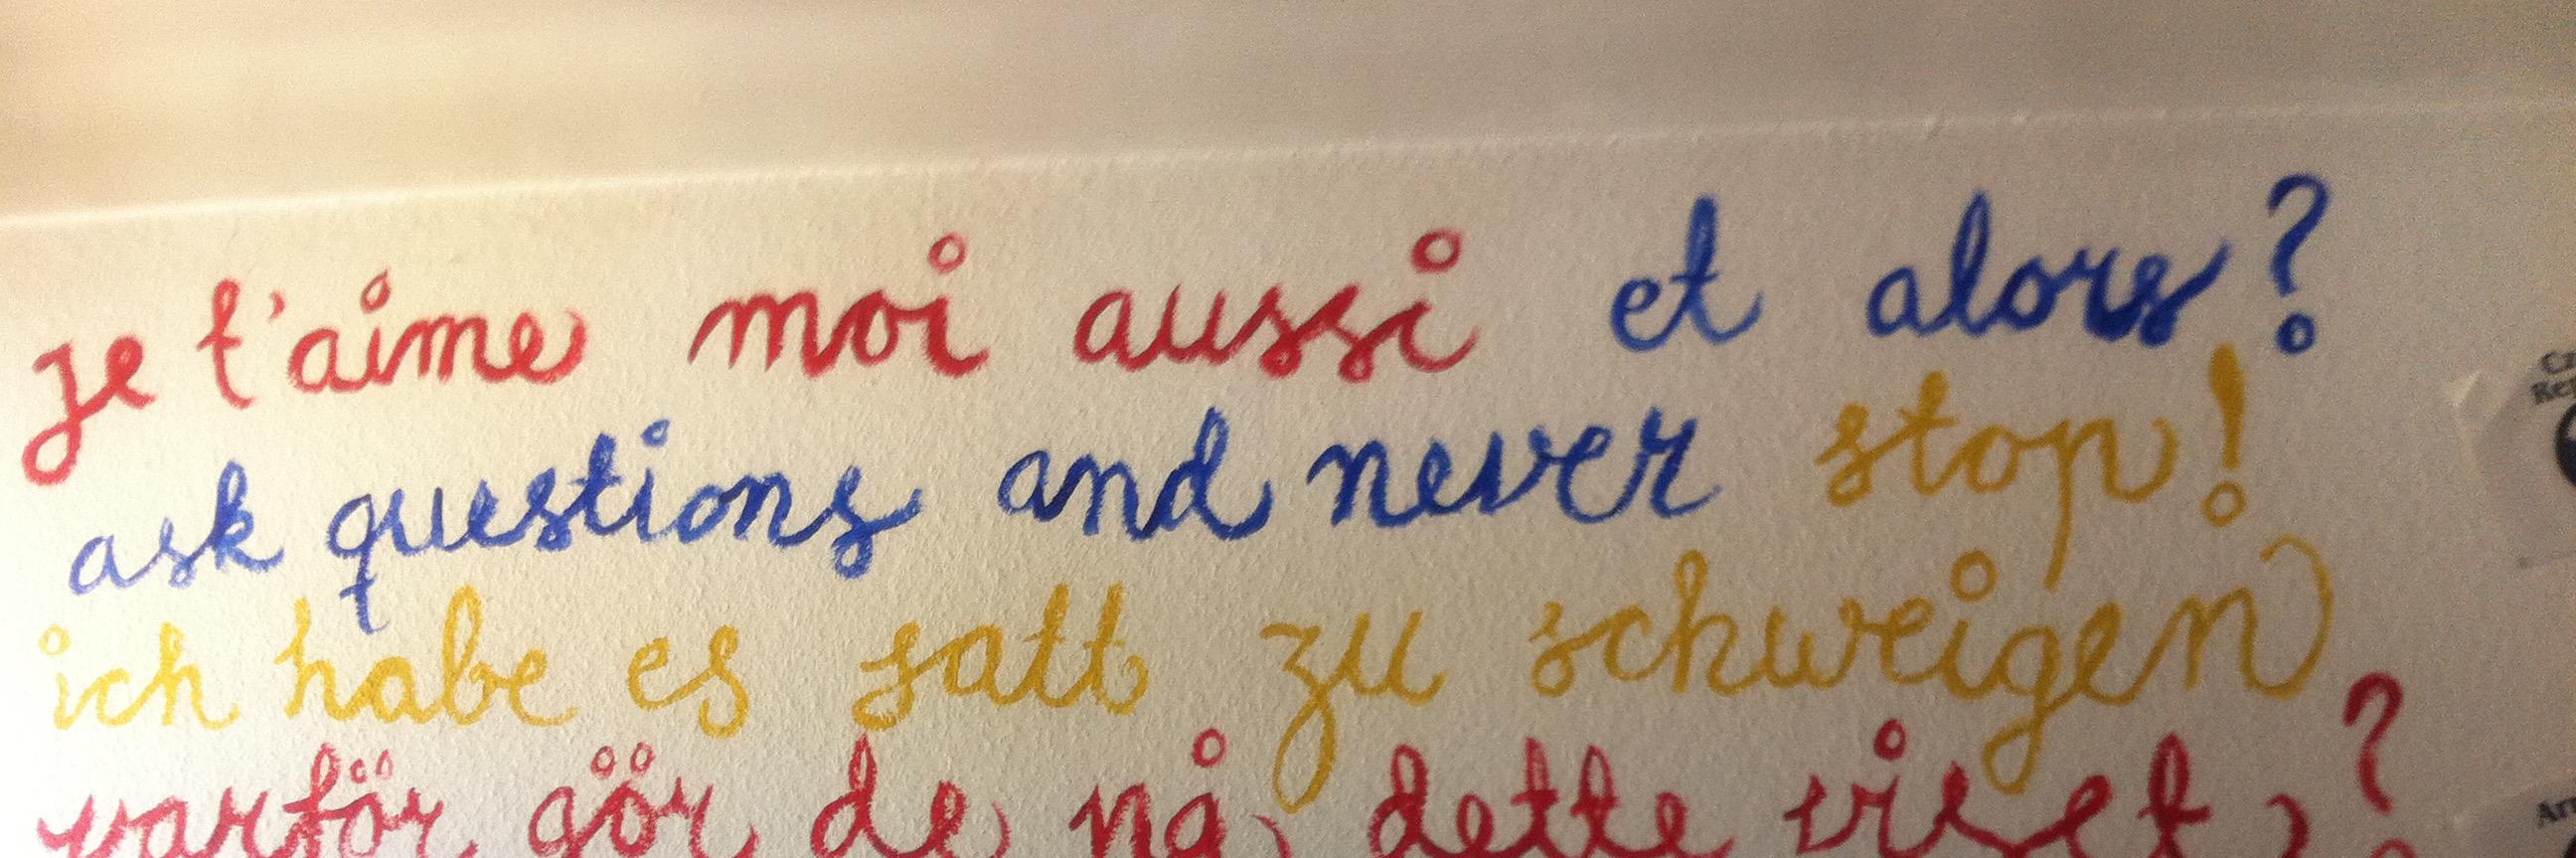 je t'aime moi aussi et alors?
ask questions and never stop!
ich habe es satt zu schweigen
varför gör de nå dette viset?